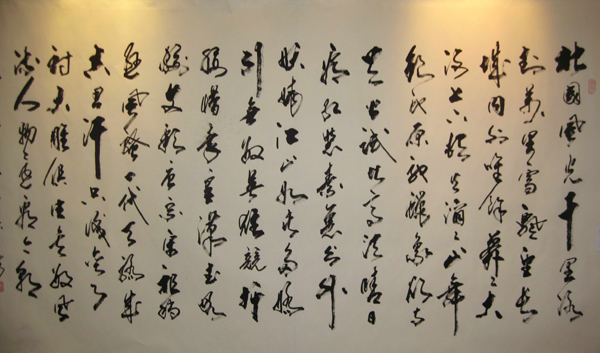 北國風光千里冰
封萬里雪飄望長
城内外唯餘莽莽大
河上下頓失滔滔山舞
銀蛇原馳蠟象欲与
天公試比高須晴日
看紅裝素裹分外
妖嬈江山如此多嬌
引無数英雄競折
腰惜秦皇漢武略
輸文彩唐宗宋祖稍
遜風騷一代天驕成
吉思汗只識弯弓
射大雕俱往矣数風
流人物還看今朝